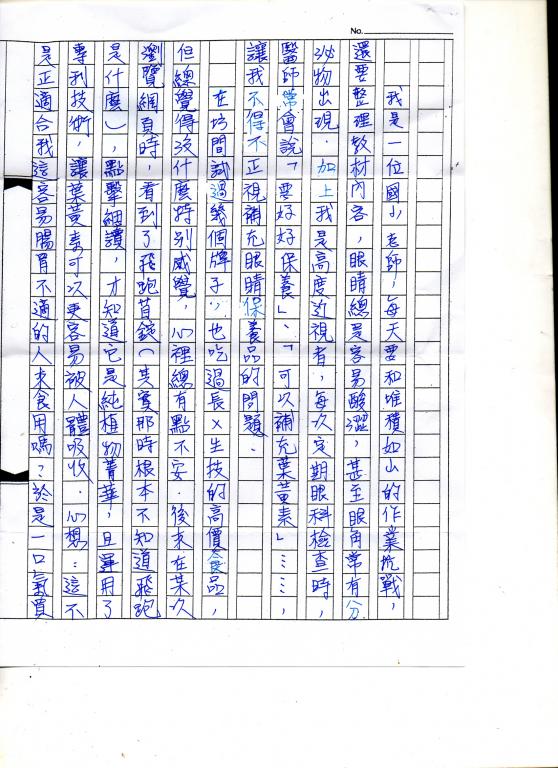 No.
我是一位國小老師,每天要和堆積如山的作業抗戰,
還要整理教材內容,眼睛總是容易酸澀,甚至眼角常有分
泌物出現.加上我是高度近視者,每次定期眼科檢查時,
醫師常會說「要好好保養」、「可以補充葉黃素」……,
讓我不得不正視補充眼睛保養品的問題.
在坊間試過幾個牌子,也吃過長×生技的高價食品,
但總覺得沒什麼特別感覺,心裡總有點不安.後來在某次
瀏覽網頁時,看到了飛跑首錠(其實那時根本不知道飛跑
是什麼),點擊細讀,才知道它是純植物菁華,且運用了
專利技術,讓葉黃素可以更容易被人體吸收.心想:這不
是正適合我這容易腸胃不適的人來食用嗎?於是一口氣買